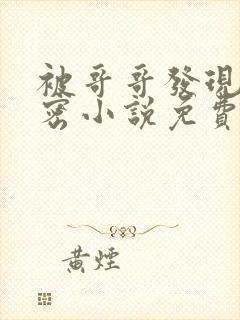 被哥哥發現
密小說免費
黃煙